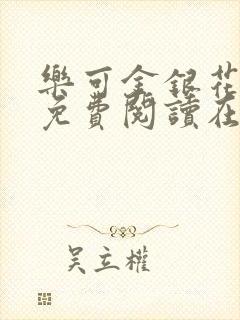 樂可金銀花
免費閱讀在
吳立權